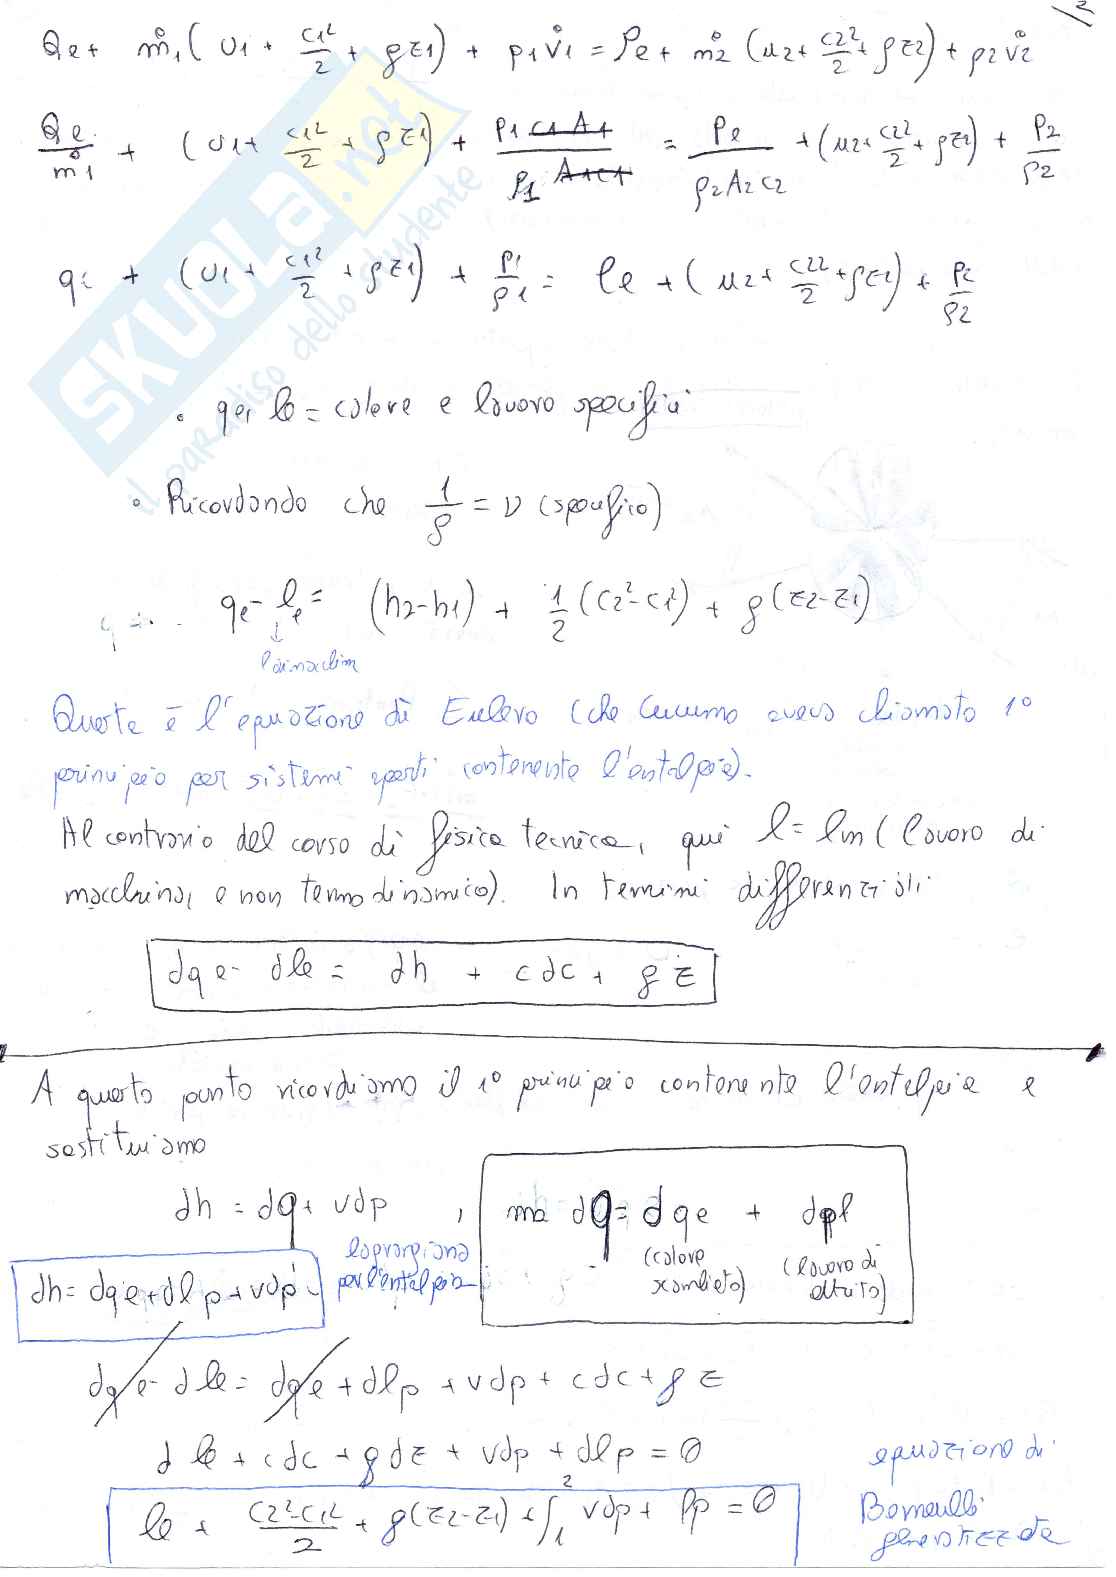 2
Qe + ṁ1 (U1 + c1²/2 + gz1) + p1 V̊1 = Pe + ṁ2 (u2 + c2²/2 + gz2) + p2 V̊2
Qe/ṁ1 + (U1 + c1²/2 + gz1) + p1 c1 A1/ρ1 A1 c1 = Pe/ρ2 A2 c2 + (u2 + c2²/2 + gz2) + p2/ρ2
qe + (U1 + c1²/2 + gz1) + p1/ρ1 = le + (u2 + c2²/2 + gz2) + p2/ρ2
• qe, le = calore e lavoro specifici
• Ricordando che 1/ρ = v (specifico)
qe - le = (h2-h1) + 1/2 (c2²-c1²) + g(z2-z1)
Questa è l'equazione di Eulero (che Cucumo aveva chiamato 1°
principio per sistemi aperti contenente l'entalpia).
Al contrario del corso di fisica tecnica, qui l = lm (lavoro di
macchina, e non termodinamico). In termini differenziali:
dqe - dle = dh + cdc + gz
A questo punto ricordiamo il 1° principio contenente l'entalpia e
sostituiamo
dh = dq + vdp , ma dq = dqe + dpl
(calore scambiato) (lavoro di attrito)
dh = dqe + dlp + vdp
dqe - dle = dqe + dlp + vdp + cdc + gz
dle + cdc + gdz + vdp + dlp = 0
le + c2²-c1²/2 + g(z2-z1) + ∫1² vdp + lp = 0
equazione di
Bernoulli
generalizzata
SKUOLA.net
il paradiso dello studente